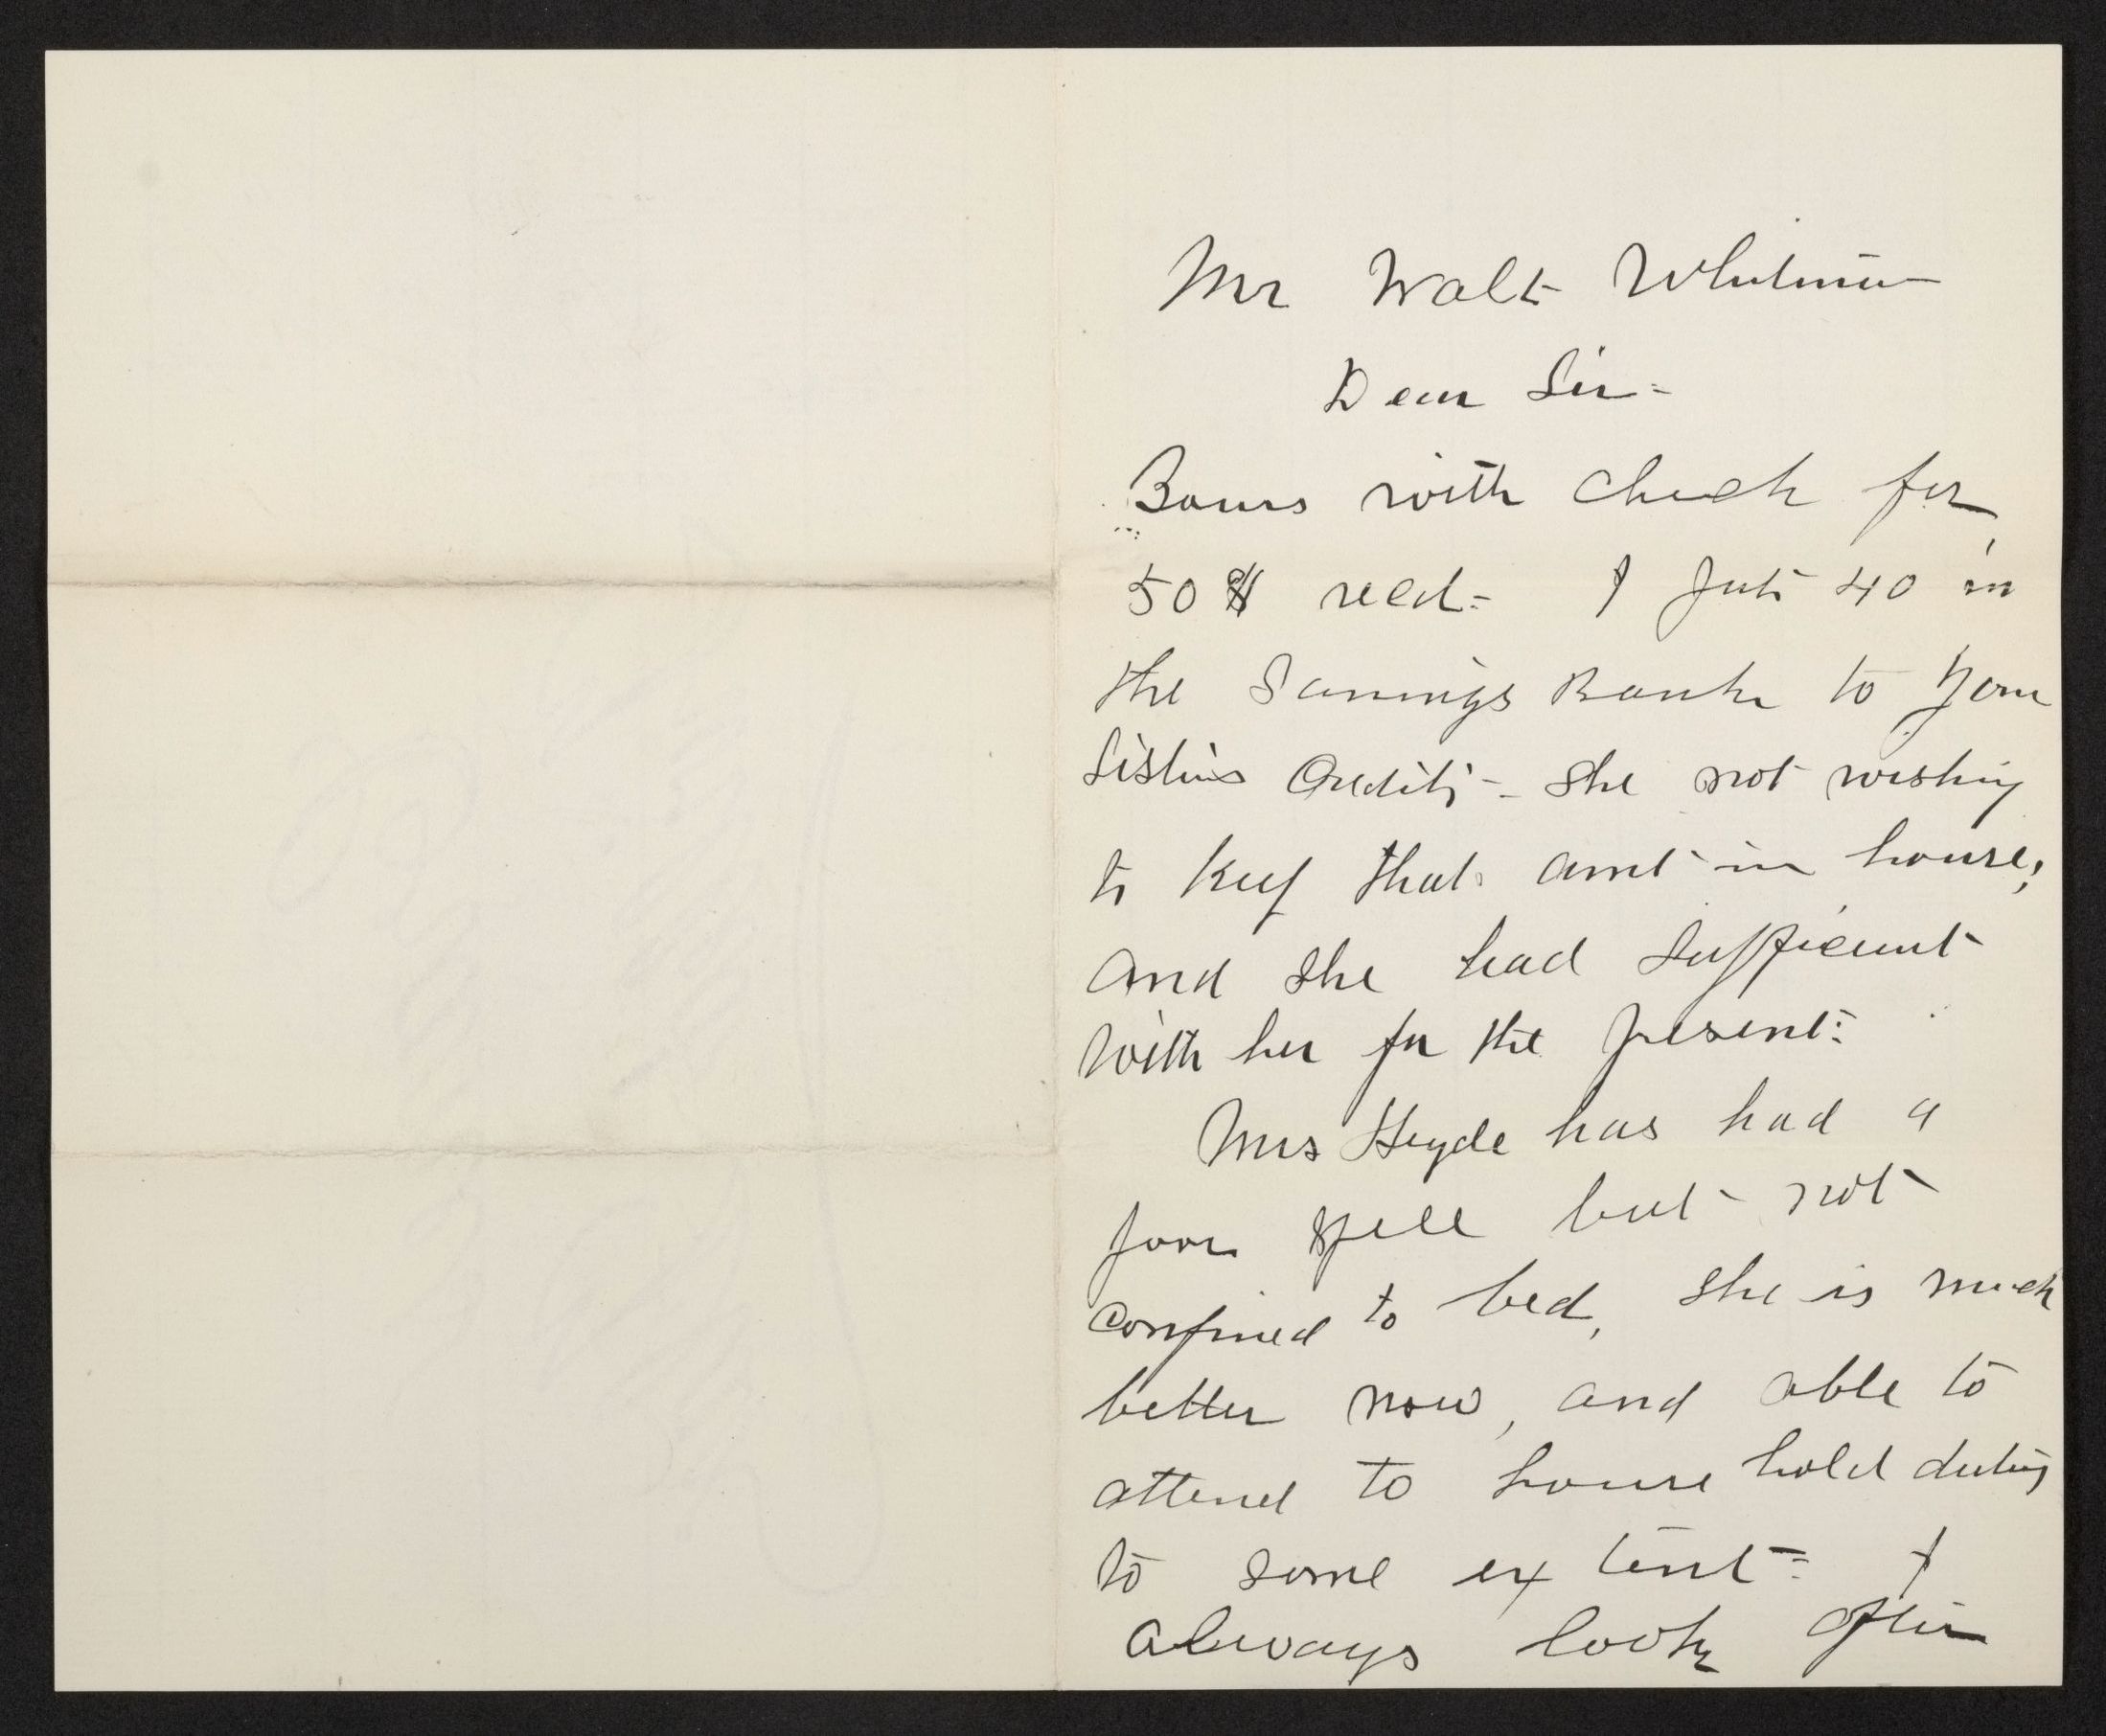 Mr Walt Whitman
Dear Sir =
Yours with check for
50 $ recd = I put 40 in
the Savings Bank to your
Sisters Credit - She not wishing
to keep that amt in house,
and she had sufficient
with her for the present =
Mrs Heyde has had a
poor spell but not
confined to bed, she is much
better now, and able to
attend to house hold duties
to some ex tent = I
always look after